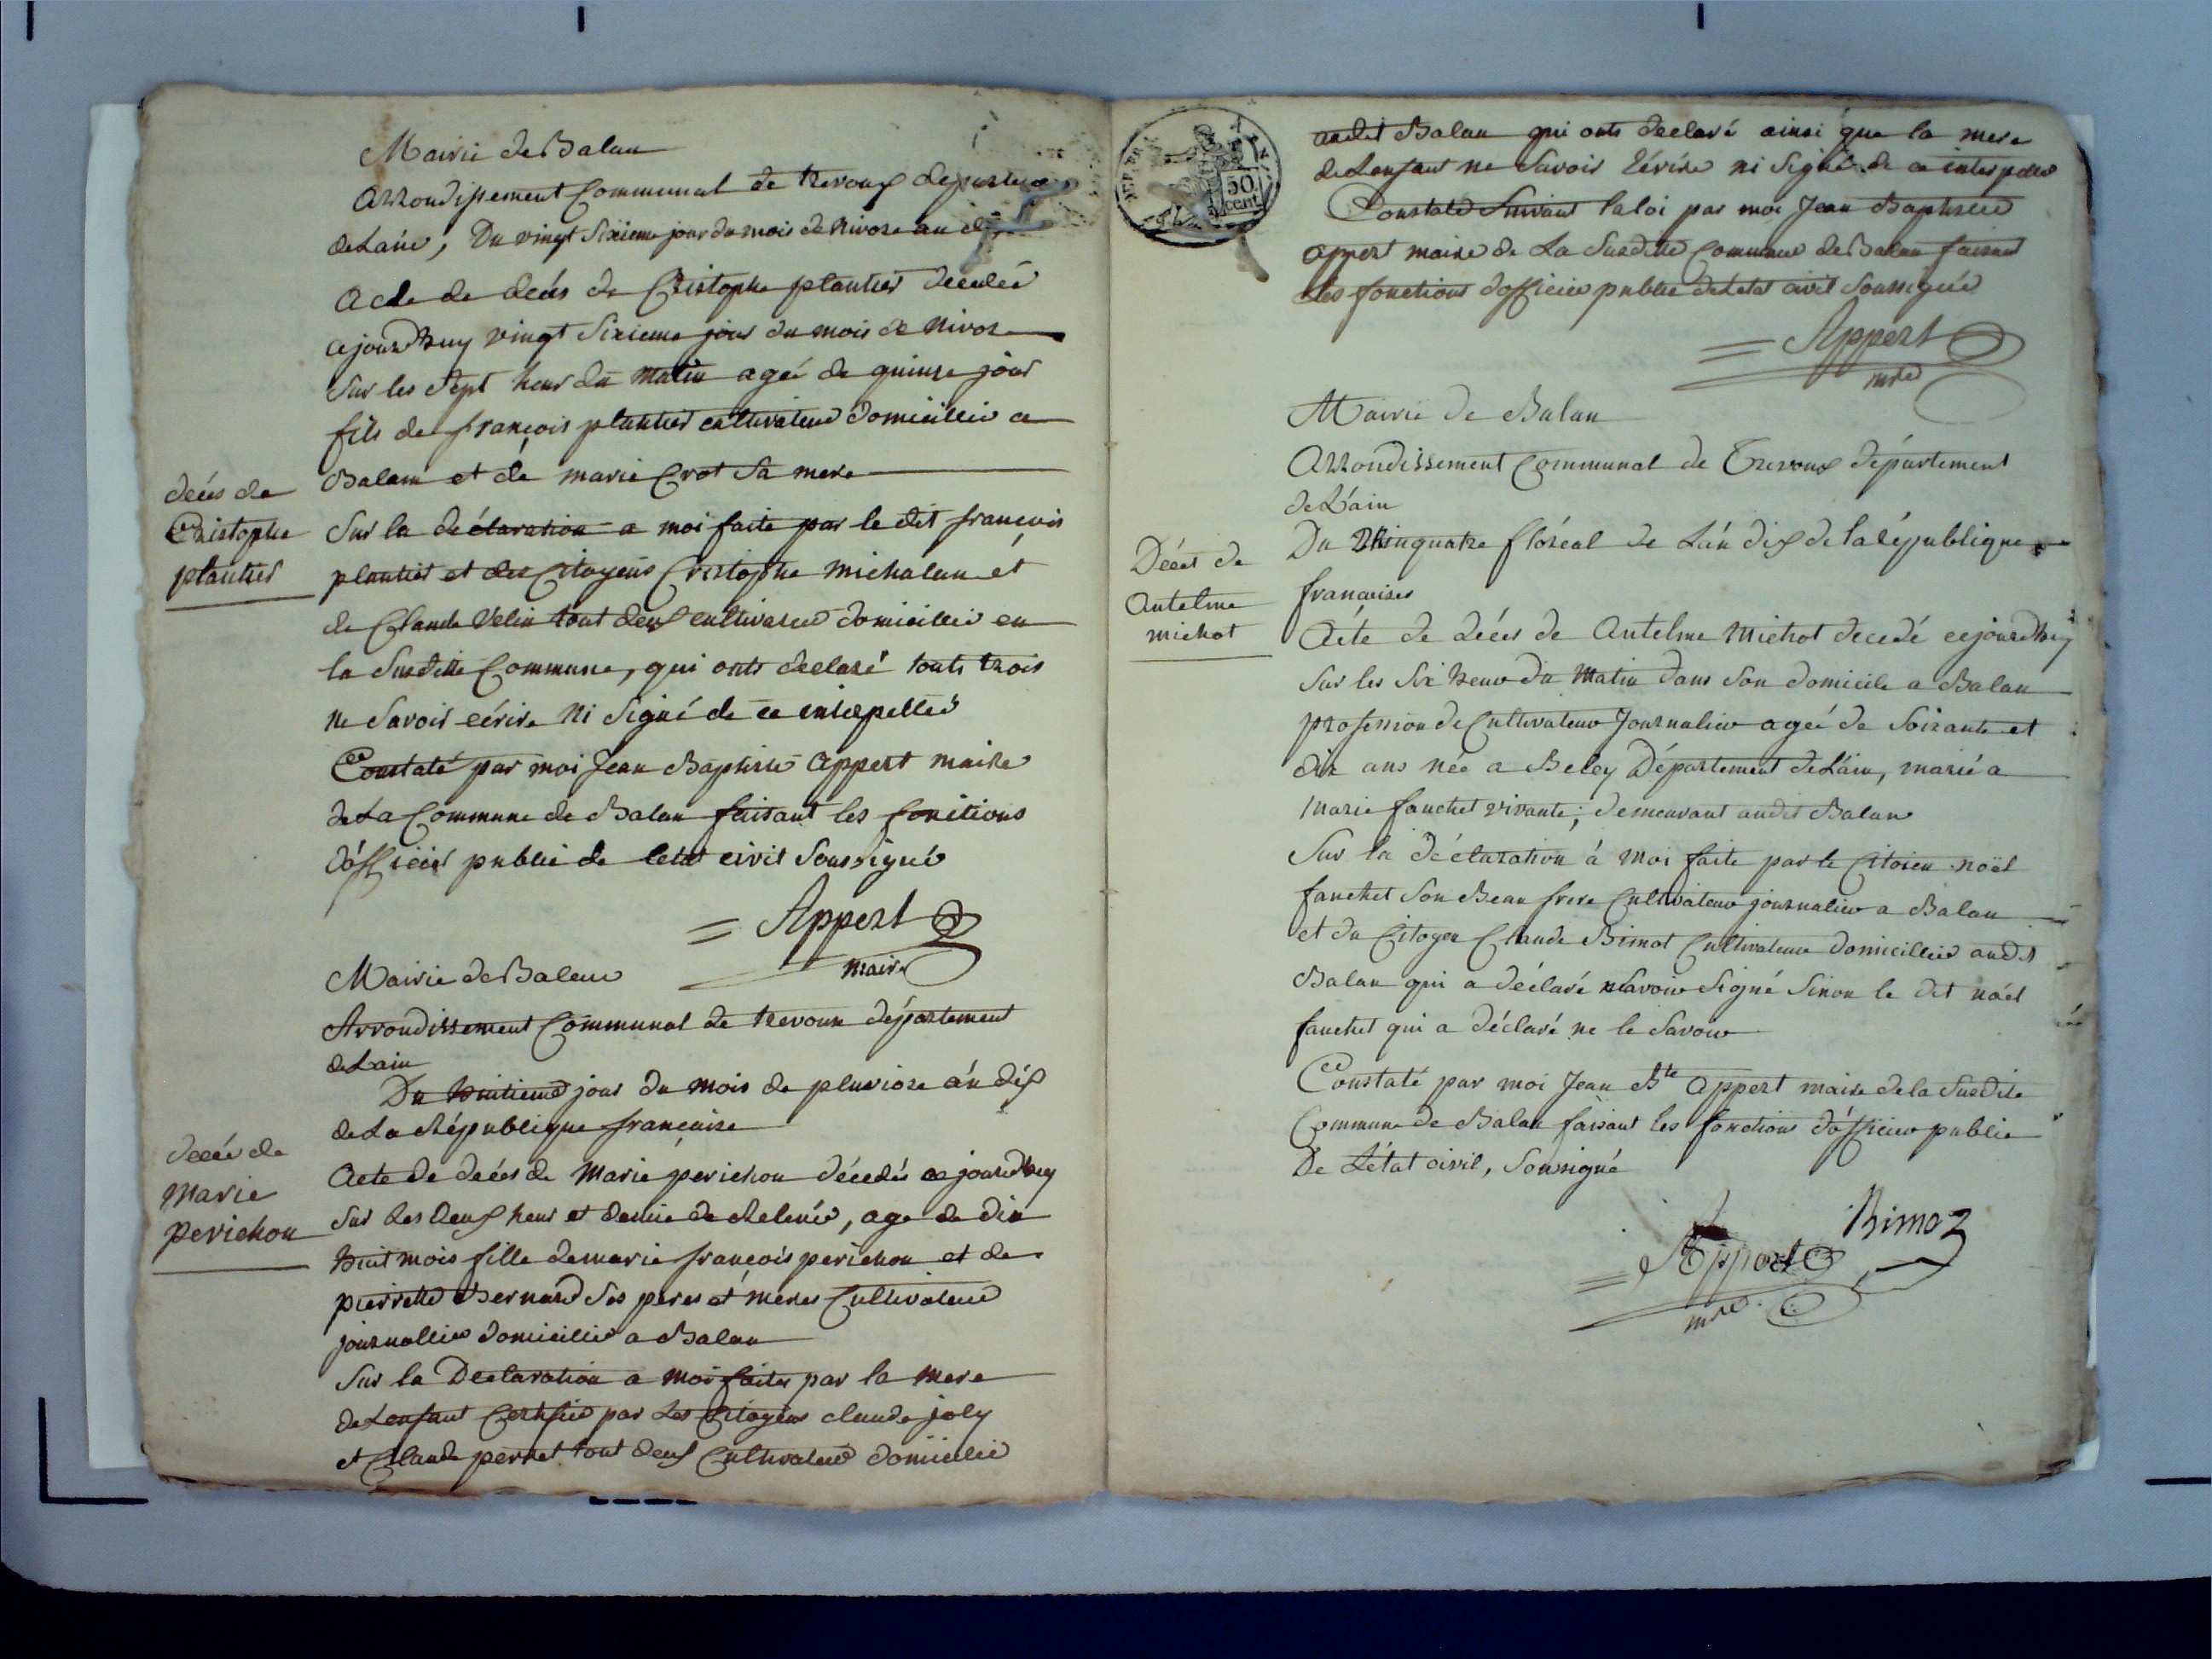 Mairie de Balan
Arrondissement Communal de trevoux departem
de Lain, Du vingt Sixieme jour du mois de Nivose an
Acte de decés de Cristophe plantier decedé
ajourdhuy vingt Sixieme jour du mois de Nivose
Sur les Sept heur du Matin ageé de quinze jour
fils de françois plantier cultivateur domicillié a
Balan et de marie Crot Sa mere
decés de
Christophe
plantier
Sur la déclaration a moi faite par le dit françois
plantier et des Citoyens Cristophe michalan et
de Claude Velin tout deux cultivateur domicillié en
la Susditte Commune, qui onts declaré touts trois
ne Savoir écrire Ni Signé de ce interpellés
Constaté par moi Jean Baptiste Appert maire
de La Commune de Balan faisant les fonctions
d'officier public de letat civil Soussigné
Appert
maire
Mairie de Balan
Arrondissement Communal de trevoux département
de Lain
Du huitieme jour du mois de pluviose an dix
de La République française
decés de
Marie
perichon
Acte de decés de Marie perichon décedés ce jourdhuy
Sur les deux heur et demie de relevée, age de dix
huit mois fille de marie françois perichon et de
pierrette Bernard Ses peres et meres Cultivateur
journallier domicillié a Balan
Sur la Declaration a moi faites par la mere
de Lenfant Certifié par Les Citoyens claude joly
et Claude perret tout deux Cultivateur domicilié
DEP. PEN.
50
cent
audit Balan qui onts declaré ainsi que la mere
de Lenfant ne Savoir Eérire ni Signé de ce interpellé
Constaté Suivant la loi par moi Jean Baptiste
Appert maire de La Susditte Commune de Balan faisant
Les fonctions dofficier public de Letat civil Soussigné
Appert
mre
Mairie de Balan
Arrondissement Communal de Trevoux département
de L'ain
Du quatre floréal de L'an dix de la république
françaises
Décès de
Antelme
michot
Acte de décès de Antelme Michot decedé cejourdhuy
Sur les Six heur du Matin dans Son domicile a Balan
profession de Cultivateur Journalier ageé de Soixante et
dix ans née a Beley Département de Lain, marié a
Marie fanchet vivante; demeurant audit Balan
Sur la déclaration à moi faite par le Citoien noël
fanchet Son Beau frere Cultivateur journalier a Balan
et du Citoyen Claude Bimot Cultivateur domicillié audit
Balan qui a déclaré Savoir Signé Sinon le dit noël
fanchet qui a déclaré ne le Savoir
Constaté par moi Jean Bte Appert maire de la Susdite
Commune de Balan faisant les fonctions d'officier public
De L'état civil, Soussigné
Bimoz
Appert
mre